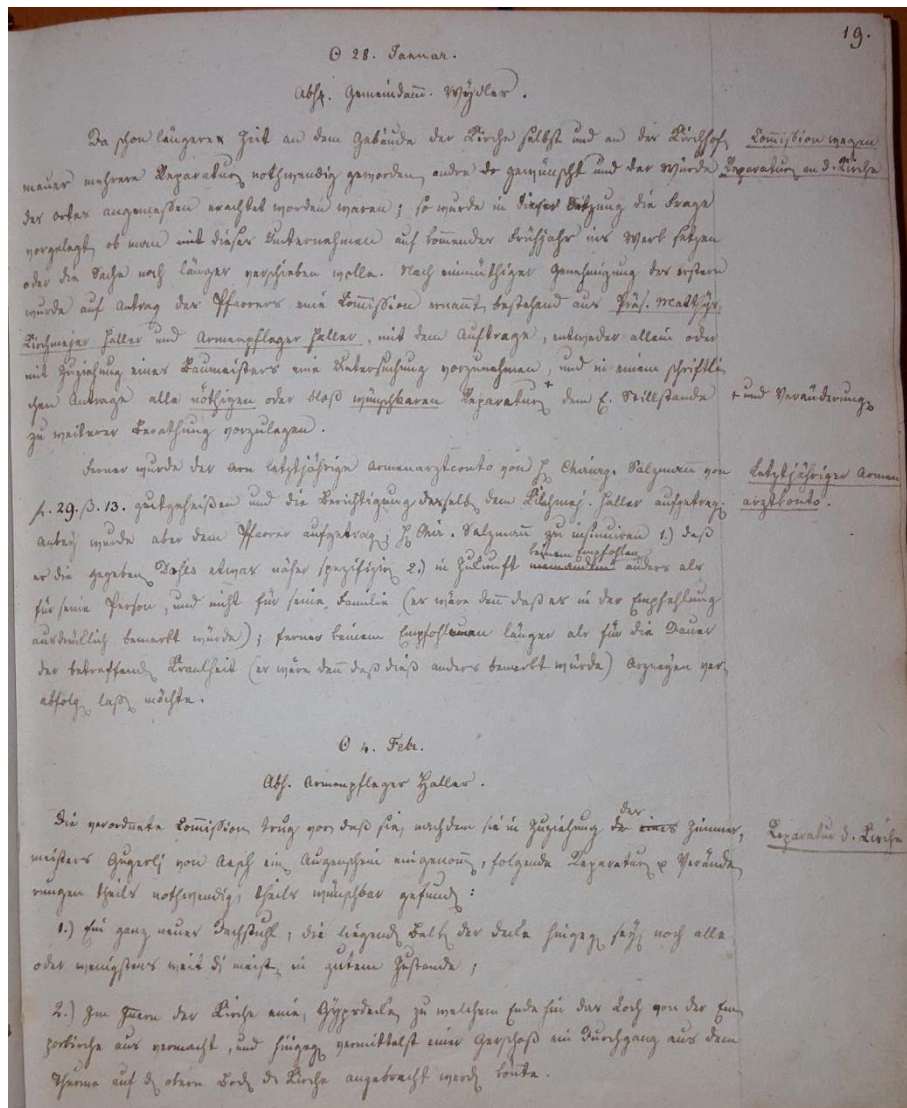 19.
☉ 28. Januar.
Abs. Gemeindam̅. Wydler.
Da schon längere Zeit an dem Gebäude der Kirche selbst und an der Kirchhof-
mauer mehrere Reparaturen nothwendig geworden, andre gewünscht und der Würde
des Ortes angemessen erachtet worden waren; so wurde in dieser Sitzung die Frage
vorgelegt, ob man mit dieser Unternehmen auf kommender Frühjahr ins Werk setzen
oder die Sache noch länger verschieben wolle. Nach einmüthiger Genehmigung des erstern
wurde auf Antrag des Pfarrers eine Com̅ission ernannt, bestehend aus Präs. Matthys,
Kirchmejer Haller und Armenpfleger Haller, mit dem Auftrage, entweder allein oder
mit Zuziehung eines Baumeisters eine Untersuchung vorzunehmen, und in einem schriftli-
chen Antrage alle nöthigen oder bloß wünschbaren Reparaturen + dem E. Stillstande
zu weiterer Berathung vorzulegen.
Com̅ission wegen
Reparaturen an d. Kirche
+ und Veränderungen
Ferner wurde der letztjährige Armenarztconto von H. Chirurg. Salzman̅ von
f. 29. ß. 13. gutgeheißen und die Berichtigung desselben dem Kilchmej. Haller aufgetragen.
Anbey wurde aber dem Pfarrer aufgetragen, H. Chir. Salzman̅ zu insinuiren 1.) daß
er die gegebenen Doses etwas näher spezifizire 2.) in Zukunft keinem Empfohlenen anders als
für seine Person, und nicht für seine Familie (es wäre den̅ daß es in der Empfehlung
ausdrüklich bemerkt würde); ferner keinem Empfohlenen länger als für die Dauer
der betreffenden Krankheit (es wäre den̅ daß dieß anders bemerkt würde) Arzneyen ver-
abfolgen lassen möchte.
Letztjähriger Armen
arztkonto.
☉ 4. Febr.
Abs. Armenpfleger Haller.
Die verordnete Com̅ission trug vor, daß sie, nachdem sie in Zuziehung des Zimmer-
meisters Gugerli von Aesch ein Augenschein eingenom̅en, folgende Reparaturen u Verände-
rungen theils nothwendig, theils wünschbar gefunden:
Reparatur d. Kirche
1.) Ein ganz neuer Dachstuhl; die liegenden Balken der Deke hingegen seyen noch alle
oder wenigstens weit die meisten in gutem Zustande;
2.) Im In̅ern der Kirche eine Gypsdeke, zu welchem Ende hin das Loch von der Em-
porkirche aus vermacht, und hingegen vermittelst einer ein Durchgang aus dem
Thurme auf den obern Boden der Kirche angebracht werden kön̅te.